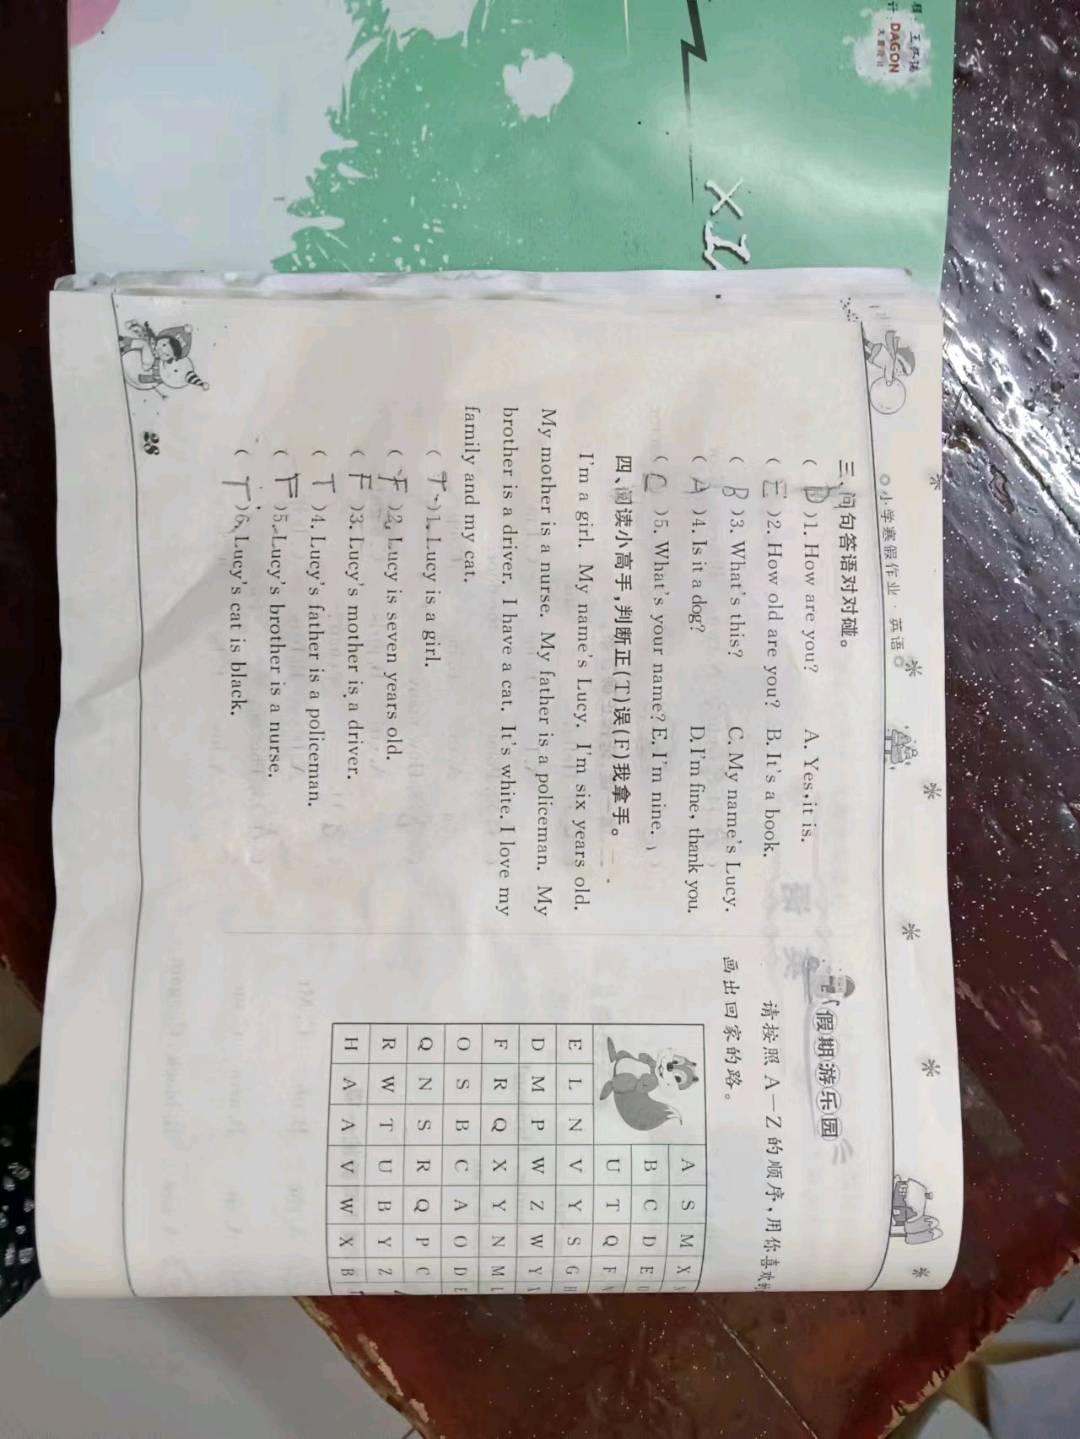 DAGON
◎小学寒假作业·英语◎
三、问句答语对对碰。
( D )1. How are you? A. Yes,it is.
( E )2. How old are you? B. It's a book.
( B )3. What's this? C. My name's Lucy.
( A )4. Is it a dog? D. I'm fine, thank you.
( C )5. What's your name? E. I'm nine.
四、阅读小高手,判断正(T)误(F)我拿手。
I'm a girl. My name's Lucy. I'm six years old.
My mother is a nurse. My father is a policeman. My
brother is a driver. I have a cat. It's white. I love my
family and my cat.
( T )1. Lucy is a girl.
( F )2. Lucy is seven years old.
( F )3. Lucy's mother is a driver.
( T )4. Lucy's father is a policeman.
( F )5. Lucy's brother is a nurse.
( T )6. Lucy's cat is black.
28
假期游乐园
请按照 A—Z 的顺序,用你喜欢
画出回家的路。
A S M X
B C D E
U T Q F
E L N V Y S G H
D M P W Z W Y
F R Q X Y N M L
O S B C A O D E
Q N S R Q P C
R W T U B Y Z
H A A V W X B